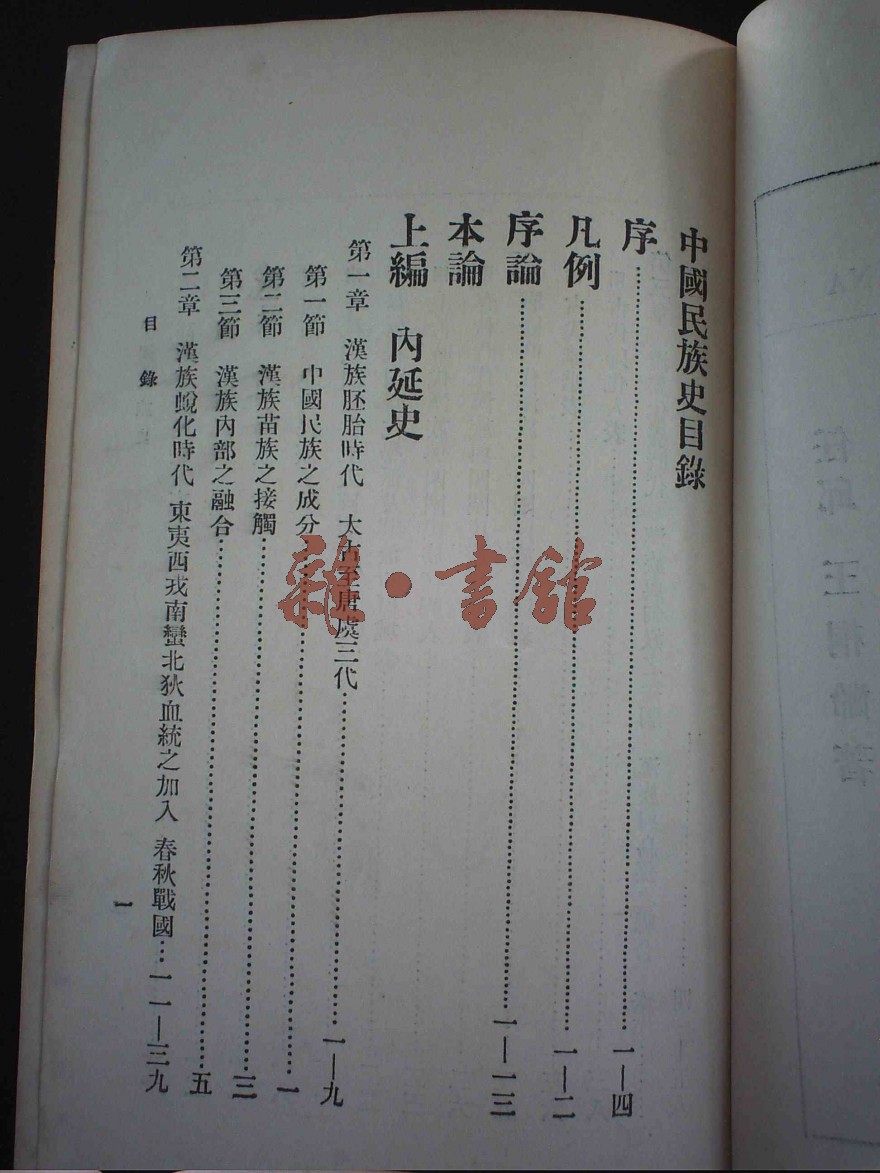 中國民族史目錄
序……一—四
凡例……一—二
序論……一—一三
本論
上編 內延史
第一章 漢族胚胎時代 太古至唐虞三代……一—九
第一節 中國民族之成分……一
第二節 漢族苗族之接觸……三
第三節 漢族內部之融合……五
第二章 漢族蛻化時代 東夷西戎南蠻北狄血統之加入 春秋戰國…一一—三九
目錄
一
雜·書館